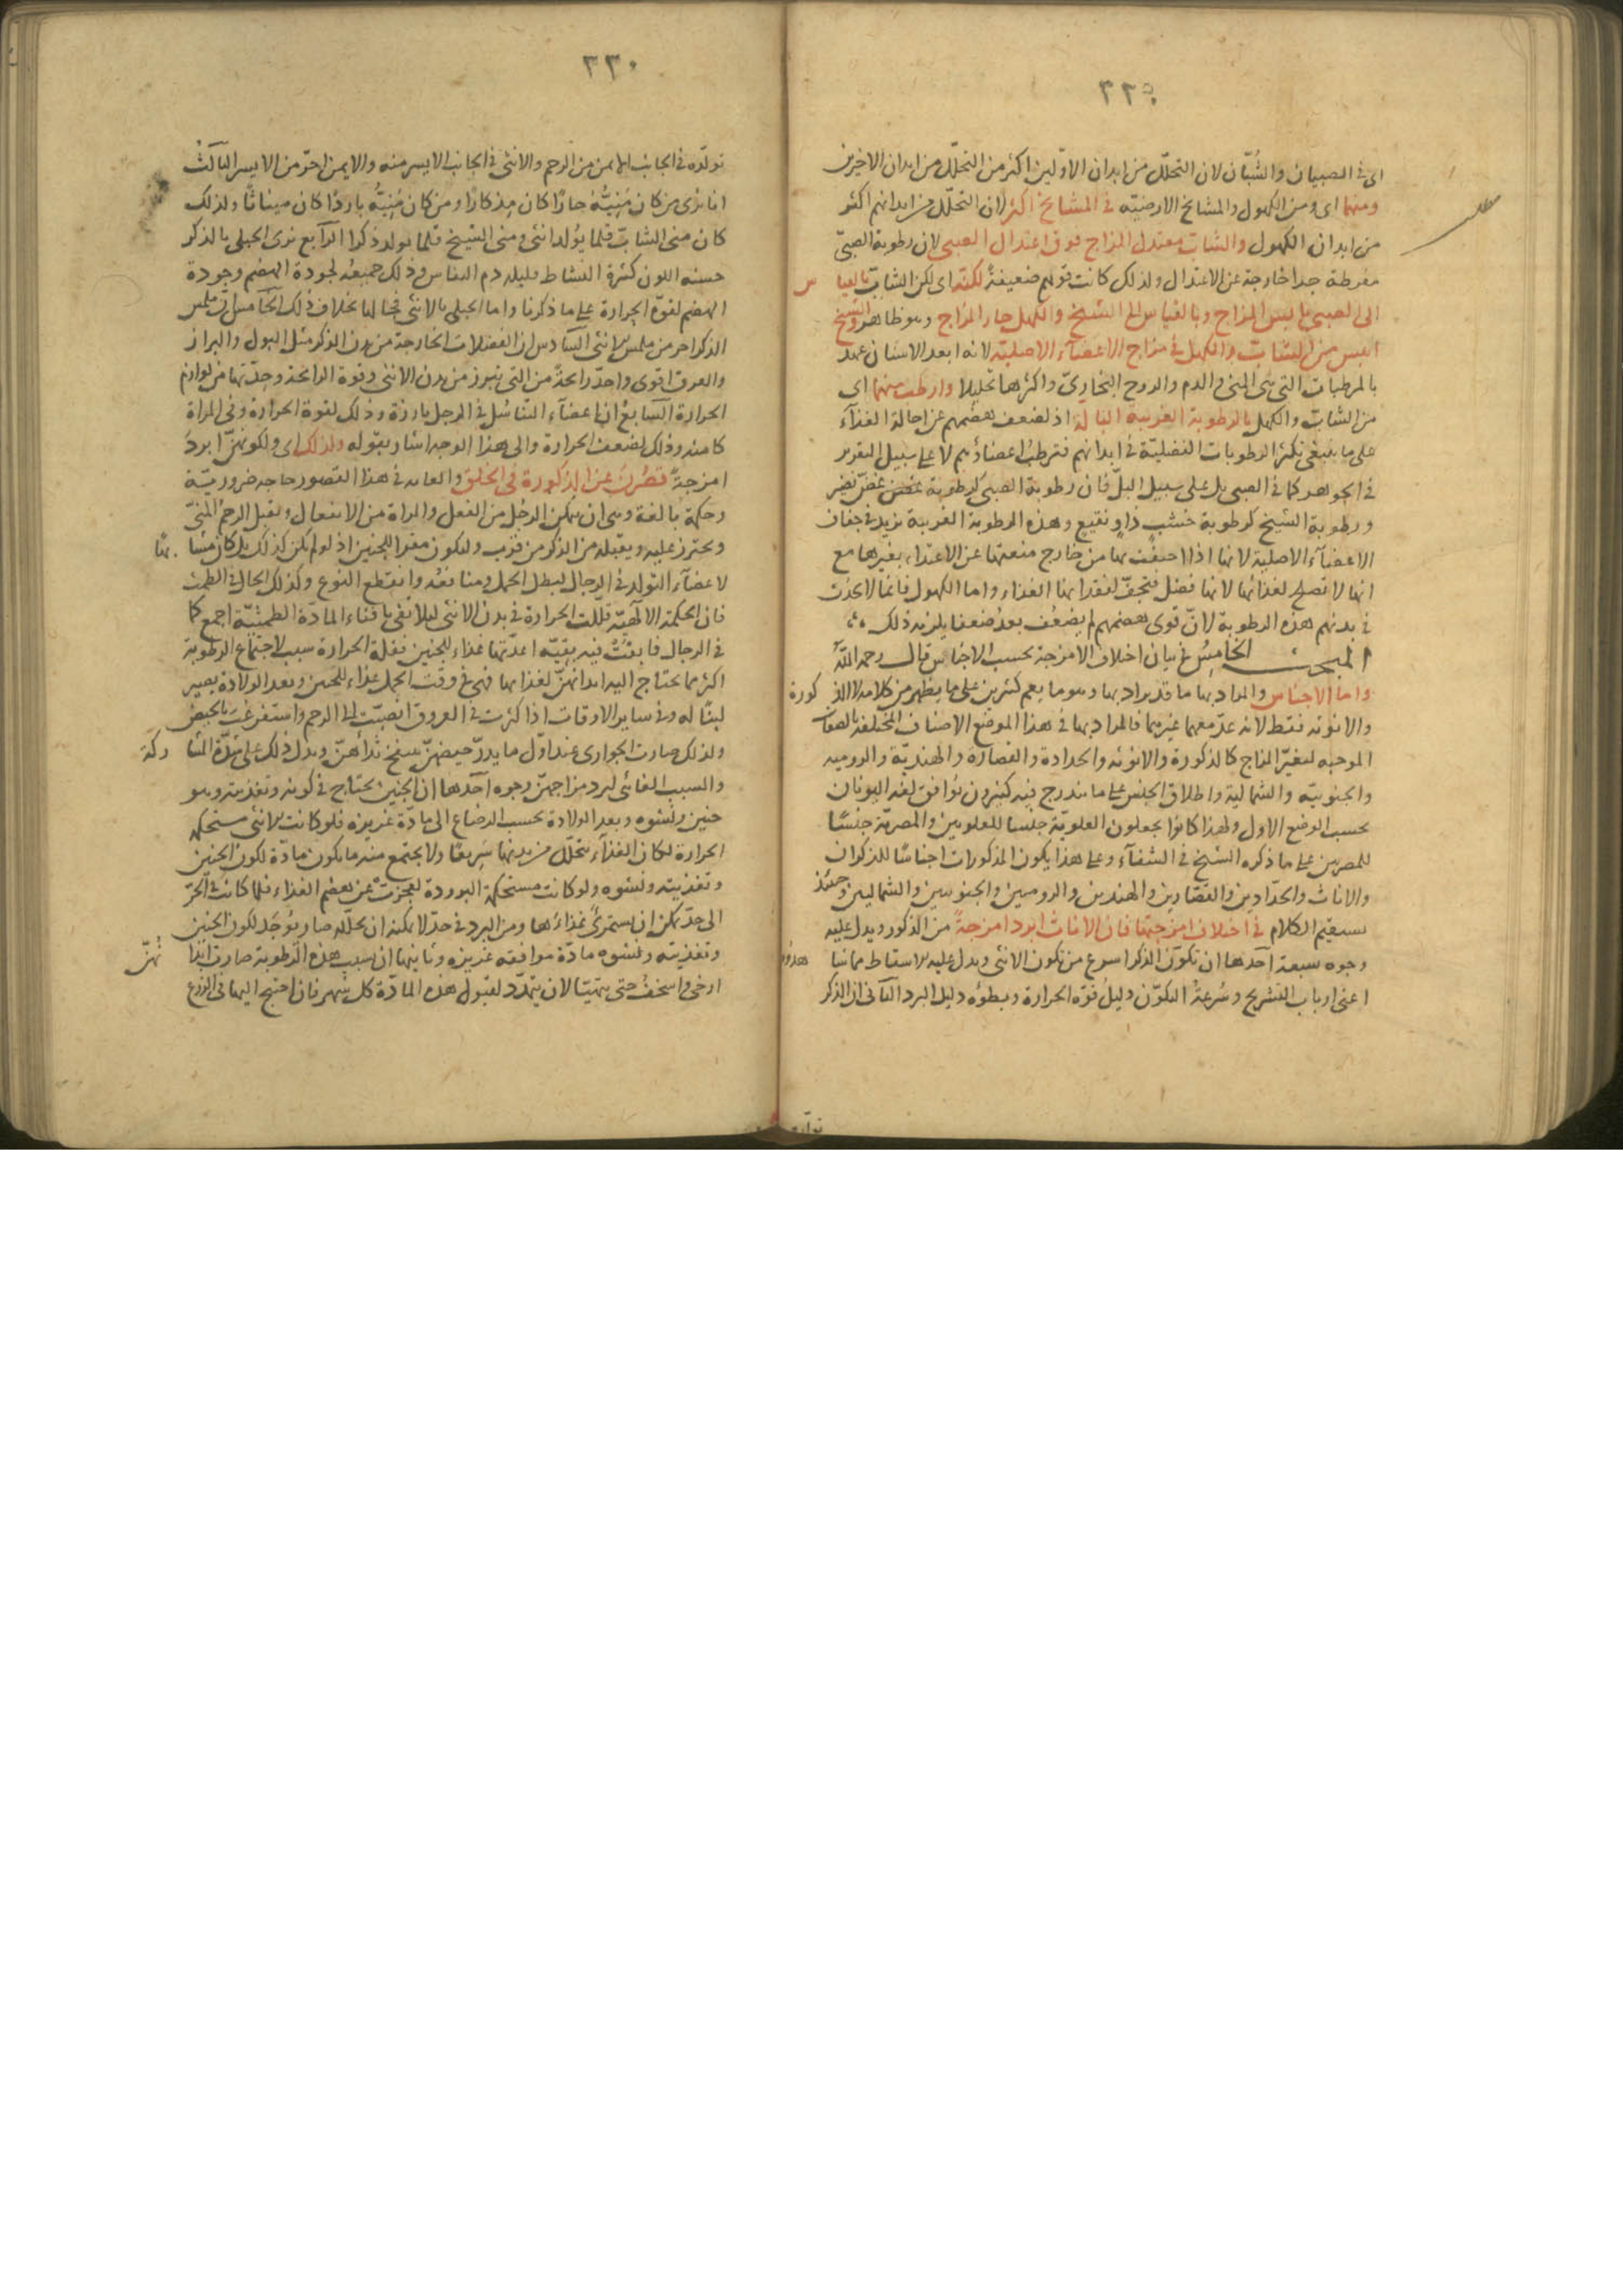 ٢٢٥
اى فى الصبيان والشُبّان لان التحلّل من ابدان الاوّلين اكثر من التحلّل من ابدان الاخيرين
ومنهما اى ومن الكهول والمشايخ الارضيّه فى المشايخ اكثر لان التحلّل من ابدانهم اكثر
من ابدان الكهول والشاب معتدل المزاج فوق اعتدال الصبى لان رطوبة الصبىّ
مفرطة جدا خارجة عن الاعتدال ولذلك كانت قوتهم ضعيفةً لكنّه اى لكن الشابّ بالقيا س
الى الصبى يابس المزاج وبالقياس الى الشيخ والكهل حار المزاج وهو ظاهر والشيخ
ايبس من الشابّ والكهل فى مزاج الاعضاء الاصليّه لانه ابعد الاسنان عهدا
بالمرطبات التى هى المنى والدم والروح البخارىّ واكثرها تحليلا وارطب منهما اى
من الشابّ والكهل بالرطوبة الغريبة البالّة اذ لضعف هضمهم عن احالة الغذآء
على ما ينبغى تكثر الرطوبات الفضليّة فى ابدانهم فترطبُ اعضاؤهم لا على سبيل التقرير
فى الجوهر كما فى الصبى بل على سبيل البلّ فان رطوبة الصبى كرطوبة غصن غضّ نضير
ورطوبة الشيخ كرطوبة خشب ذاوٍ نقيع وهذه الرطوبة الغريبة تزيد فى جفاف
الاعضآء الاصلية لانها اذا احتفّت بها من خارج منعتها عن الاغتذاء بغيرها مع
انها لا تصلح لغذائها لانها فضل فتجفّ لفقدانها الغذاء واما الكهول فانما لا يحدث
فى بدنهم هذه الرطوبة لانّ قوى هضمهم لم يضعُف بعدُ ضعفا يلزمه ذلك
المبحث الخامِسُ فى بيان اختلاف الامزجة بحسب الاجناس قال رحمه اللّه
واما الاجناس والمراد بها ما قد يراد بها وهو ما يعم كثيرين على ما يظهر من كلامه لا الذ كورة
والانوثه فقط لانه عدّ معهما غيرهما فالمراد بها فى هذا الموضع الاصناف المختلفة بالصفات
الموجبه لتغيّر المزاج كالذكورة والانوثه والحدادة والقصارة والهنديّة والروميه
والجنوبيّه والشمالية واطلاق الجنس على ما يندرج فيه كثيرون يُوافق لغة اليونان
بحسب الوضع الاول ولهذا كانوا يجعلون العلويّة جنسا للعلويين والمصريّة جنسًا
للمصريين على ما ذكره الشيخ فى الشفآء وعلى هذا يكون المذكورات اجناسًا للذكران
والاناث والحدّادين والقصّارين والهنديين والروميين والجنوبيين والشماليين وحينئذ
يستقيم الكلام فى اختلاف امزجتها فان الاناث ابرد امزجةً من الذكور ويدل عليه
وجوه سبعة آحدها ان تكوّن الذكر اسرع من تكون الانثى ويدل عليه الاسقاط مما شا هدوا
اعنى ارباب التشريح وسُرعةُ التكوّن دليل قوّه الحرارة وبطؤه دليل البرد الثآنى ان الذكر
تولّده
٢٢٠
تولّده فى الجانب الايمن من الرحم والانثى فى الجانب الايسر منه والايمن احرّ من الايسر الثآلثُ
انا نرى من كان مَنِيّهُ حارًا كان مِذكارًا ومن كان مَنِيّهُ باردًا كان ميناثًا ولذلك
كان منى الشابّ قلما يُولد انثى ومنى الشيخ قلما يولد ذكرا الرآبع نرى الحبلى بالذكر
حسنه اللون كثيرة النشاط قليله دم النفاس وذلك جميعُه لجودة الهضم وجودة
الهضم لقوّة الحرارة على ما ذكرنا واما الحبلى بالانثى فحالها بخلاف ذلك الخآمس ان ملمس
الذكر احر من ملمس الانثى السّآدس ان الفضلات الخارجة من بدن الذكر مثل البول والبراز
والعرق اقوى واحدّ رائحةً من التى تبرز من بدن الانثى وقوة الرائحة وحدّتها من لوازم
الحرارة السّآبعُ ان اعضآء التّناسُل فى الرجل بارزة وذلك لقوة الحرارة وفى المراة
كامنه وذلك لضعف الحرارة والى هذا الوجه اشار بقوله ولذلك اى ولكونهنّ ابردَ
امزجةً قصُرنَ عن الذكورة فى الخلق والعامه فى هذا القصور حاجه ضروريّة
وحكمة بالغة وهى ان يتمكن الرجُل من الفعل والمراة من الانفعال وتقبل الرحمُ المنىّ
ويحترز عليه ويقبله من الذكر من قرب وليكون مقرا للجنين اذ لو لم يكن كذلك بل كان مشا بهًا
لاعضآء التولّد فى الرجال لبطل الحمل ومنافعُه وانقطع النوع وكذلك الحال فى الطمث
فان الحكمة الآلهيّة قللت الحرارة فى بدن الانثى ليلا تفى بافناء المادّة الطمثيّة اجمع كما
فى الرجال فابقتْ فيه بقيّه اعدّتها غذاء للجنين فقلة الحرارة سبب لاجتماع الرطوبة
اكثر مما تحتاج اليه ابدانهنّ لغذائها فهى فى وقت الحمل غذاء للجنين وبعد الولادة يصير
لبنًا له وفى ساير الاوقات اذا كثرت فى العروق انصبّت الى الرحم واستفرغتَ بالحيض
ولذلك صارت الجوارى عند اوّل ما يدرّ حيضهنّ ينتفخ ثداهنّ ويدل ذلك على شدّة المشا ركة
والسبب الغائى لبرد مزاجهنّ وجوه آحدها ان الجنين يحتاج فى كونه وتغذيته وهو
جنين ونشوه وبعد الولادة بحسب الرضاع الى مادّة غزيره فلو كانت الانثى مستحكمه
الحرارة لكان الغذآء يتحلّل من بدنها سريعًا ولا يجتمع منه ما يكون مادّة لكون الجنين
وتغذيته ونشوه ولو كانت مستحكمة البرودة لعجزتْ عن هضم الغذاء فلما كانت فى الحرّ
الى حدّ يمكن ان يستمرئ غذاءها ومن البرد فى حدّ لا يمكنه ان يحلّله صار يُوجَد لكون الجنين
وتغذيته ونشوه مادّة موافقه غزيره وثانيها ان بسبب هذه الرّطوبة صارت ابدا نهنّ
ارخى واسخفُ حتى يتهيّا لان يتمدّد لقبول هذه المادّة كل شهر فان احتيج اليها فى الزرع